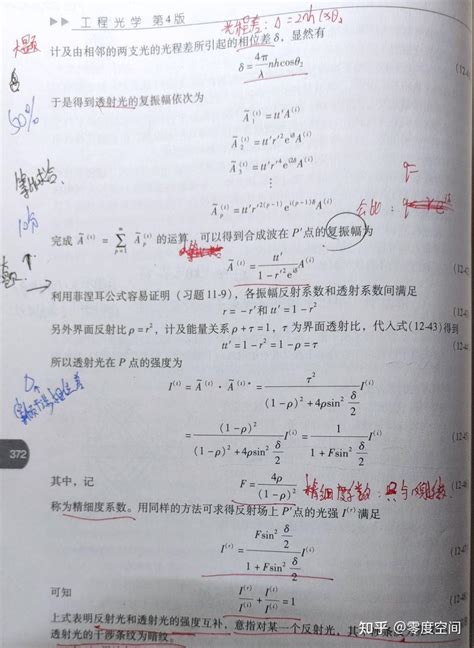 ▶▶ 工程光学 第4版
光程差: Δ = 2nh cosθ₂
大题
计及由相邻的两支光的光程差所引起的相位差 δ，显然有
δ = 4π/λ nhcosθ₂ (12-
于是得到透射光的复振幅依次为
60%
Ã₁⁽ᵗ⁾ = tt'A⁽ⁱ⁾
Ã₂⁽ᵗ⁾ = tt'r'²e^{iδ}A⁽ⁱ⁾
Ã₃⁽ᵗ⁾ = tt'r'⁴e^{i2δ}A⁽ⁱ⁾
⋮
Ãₚ⁽ᵗ⁾ = tt'r'^{2(p-1)}e^{i(p-1)δ}A⁽ⁱ⁾
公比: q
完成 Ã⁽ᵗ⁾ = Σ_{p=1}^{∞} Ãₚ⁽ᵗ⁾ 的运算，可以得到合成波在 P'点的复振幅为
Ã⁽ᵗ⁾ = tt'/(1-r'²e^{iδ}) A⁽ⁱ⁾ (12-43
利用菲涅耳公式容易证明（习题 11-9），各振幅反射系数和透射系数间满足
r = -r'和 tt' = 1-r² (12-
另外界面反射比 ρ=r²，计及能量关系 ρ+τ=1，τ 为界面透射比，代入式(12-43)得到
tt' = 1-r² = 1-ρ = τ (12-44
所以透射光在 P 点的强度为
I⁽ᵗ⁾ = Ã⁽ᵗ⁾ · Ã⁽ᵗ⁾* = τ²/((1-ρ)²+4ρsin² δ/2) I⁽ⁱ⁾
= (1-ρ)²/((1-ρ)²+4ρsin² δ/2) I⁽ⁱ⁾ = 1/(1+Fsin² δ/2) I⁽ⁱ⁾ (12-45
372
其中，记
F = 4ρ/(1-ρ)² (12-46
精细度系数: 只与
称为精细度系数。用同样的方法可求得反射场上 P'点的光强 I⁽ʳ⁾ 满足
I⁽ʳ⁾ = Fsin² δ/2 /(1+Fsin² δ/2) I⁽ⁱ⁾ (12-47
可知
I⁽ʳ⁾/I⁽ⁱ⁾ + I⁽ᵗ⁾/I⁽ⁱ⁾ = 1 (12-48
上式表明反射光和透射光的强度互补，意指对某一个反射光，其
透射光的干涉条纹为暗纹。
知乎 @零度空间